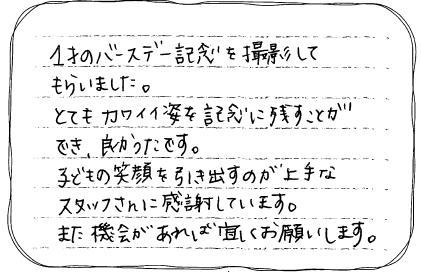 1才のバースデー記念を撮影して
もらいました。
とてもカワイイ姿を記念に残すことが
でき、良かったです。
子どもの笑顔を引き出すのが上手な
スタッフさんに感謝しています。
また機会があれば宜しくお願いします。